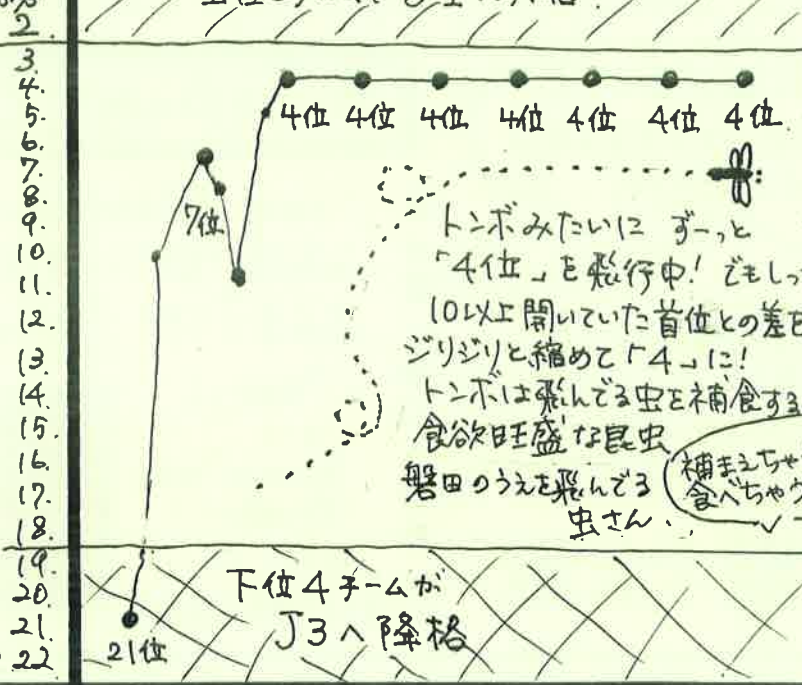 2.
3.
4.
5.
6.
7.
8.
9.
10.
11.
12.
13.
14.
15.
16.
17.
18.
19.
20.
21.
22
4位 4位 4位 4位 4位 4位 4位
7位
トンボみたいに ずーっと
「4位」を飛行中! でもしっ
10以上開いていた首位との差を
ジリジリと縮めて「4」に!
トンボは飛んでる虫を補食する
食欲旺盛な昆虫
磐田のうえを飛んでる
虫さん..
補まえちゃ
食べちゃう
下位4チームが
J3へ降格
21位